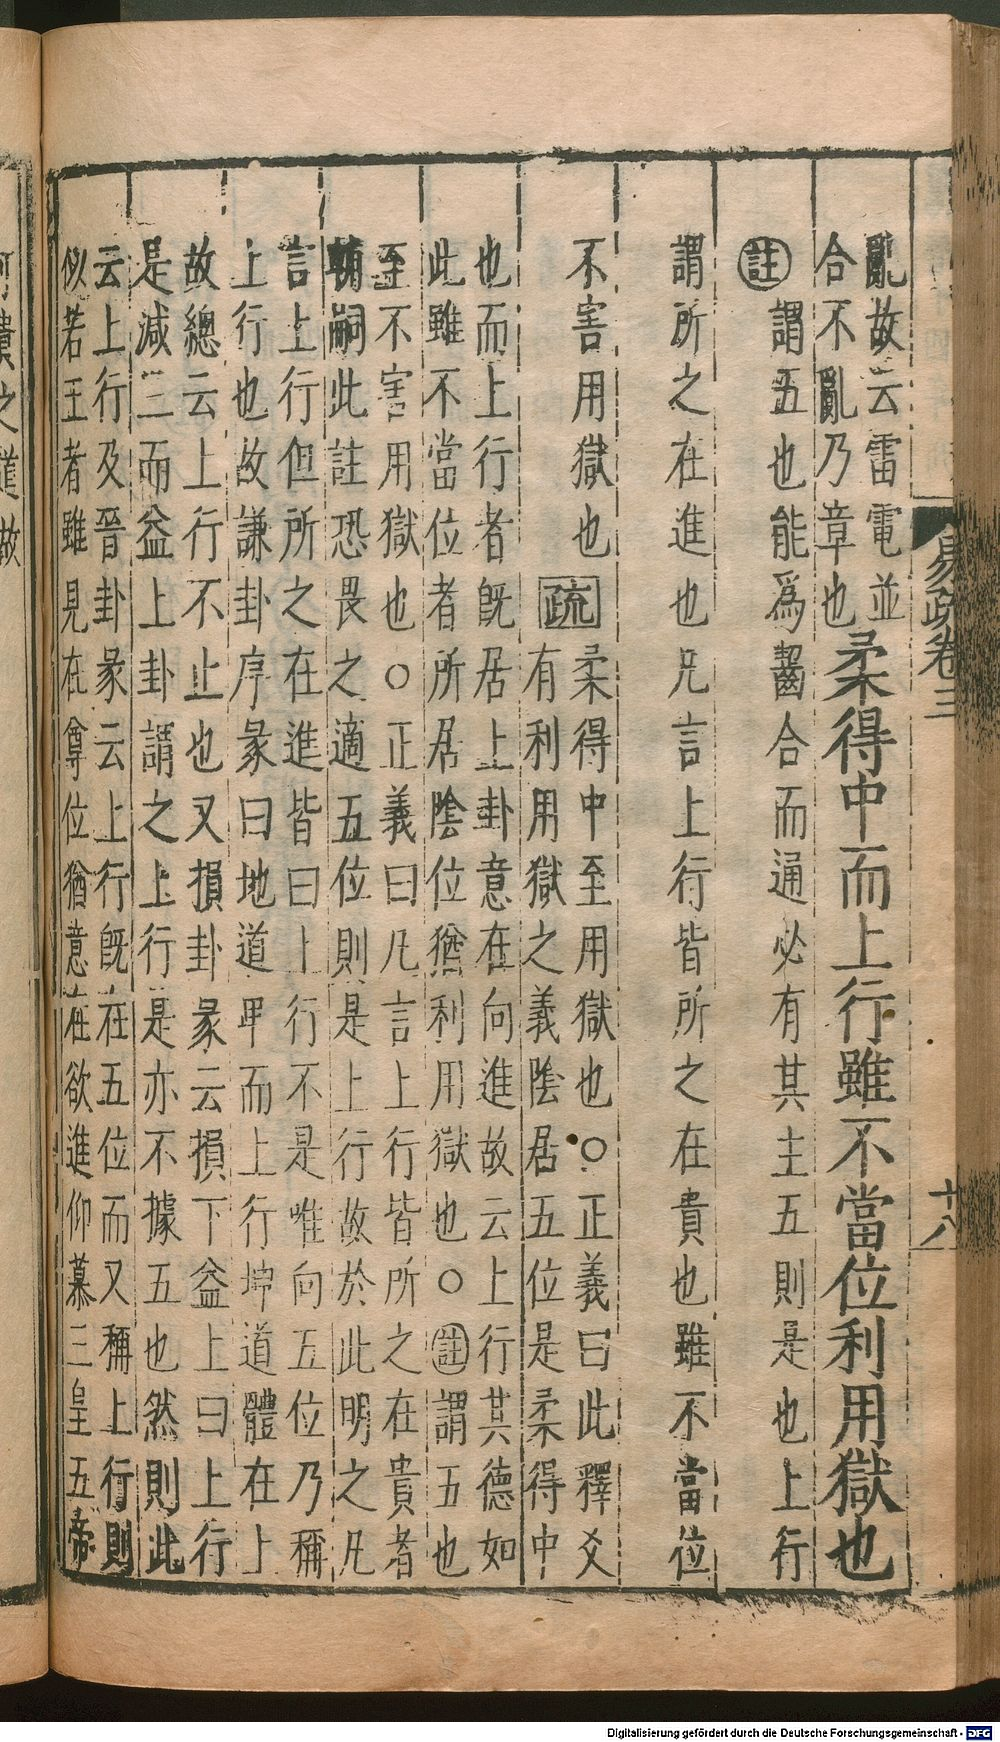 亂故云雷電並
合不亂乃章也
柔得中而上行雖不當位利用獄也
註 謂五也能爲齧合而通必有其主五則是也上行
謂所之在進也凡言上行皆所之在貴也雖不當位
不害用獄也 疏 柔得中至用獄也○正義曰此釋爻
有利用獄之義陰居五位是柔得中
也而上行者既居上卦意在向進故云上行其德如
此雖不當位者所居陰位猶利用獄也○註謂五也
至不害用獄也○正義曰凡言上行皆所之在貴者
輔嗣此註恐畏之適五位則是上行故於此明之凡
言上行但所之在進皆曰上行不是唯向五位乃稱
上行也故謙卦序彖曰地道卑而上行坤道體在上
故總云上行不止也又損卦彖云損下益上曰上行
是減三而益上卦謂之上行是亦不據五也然則此
云上行及晉卦彖云上行既在五位而又稱上行則
似若王者雖見在尊位猶意在欲進仰慕三皇五帝
易疏卷三
十八
可貴之道故
Digitalisierung gefördert durch die Deutsche Forschungsgemeinschaft - DFG